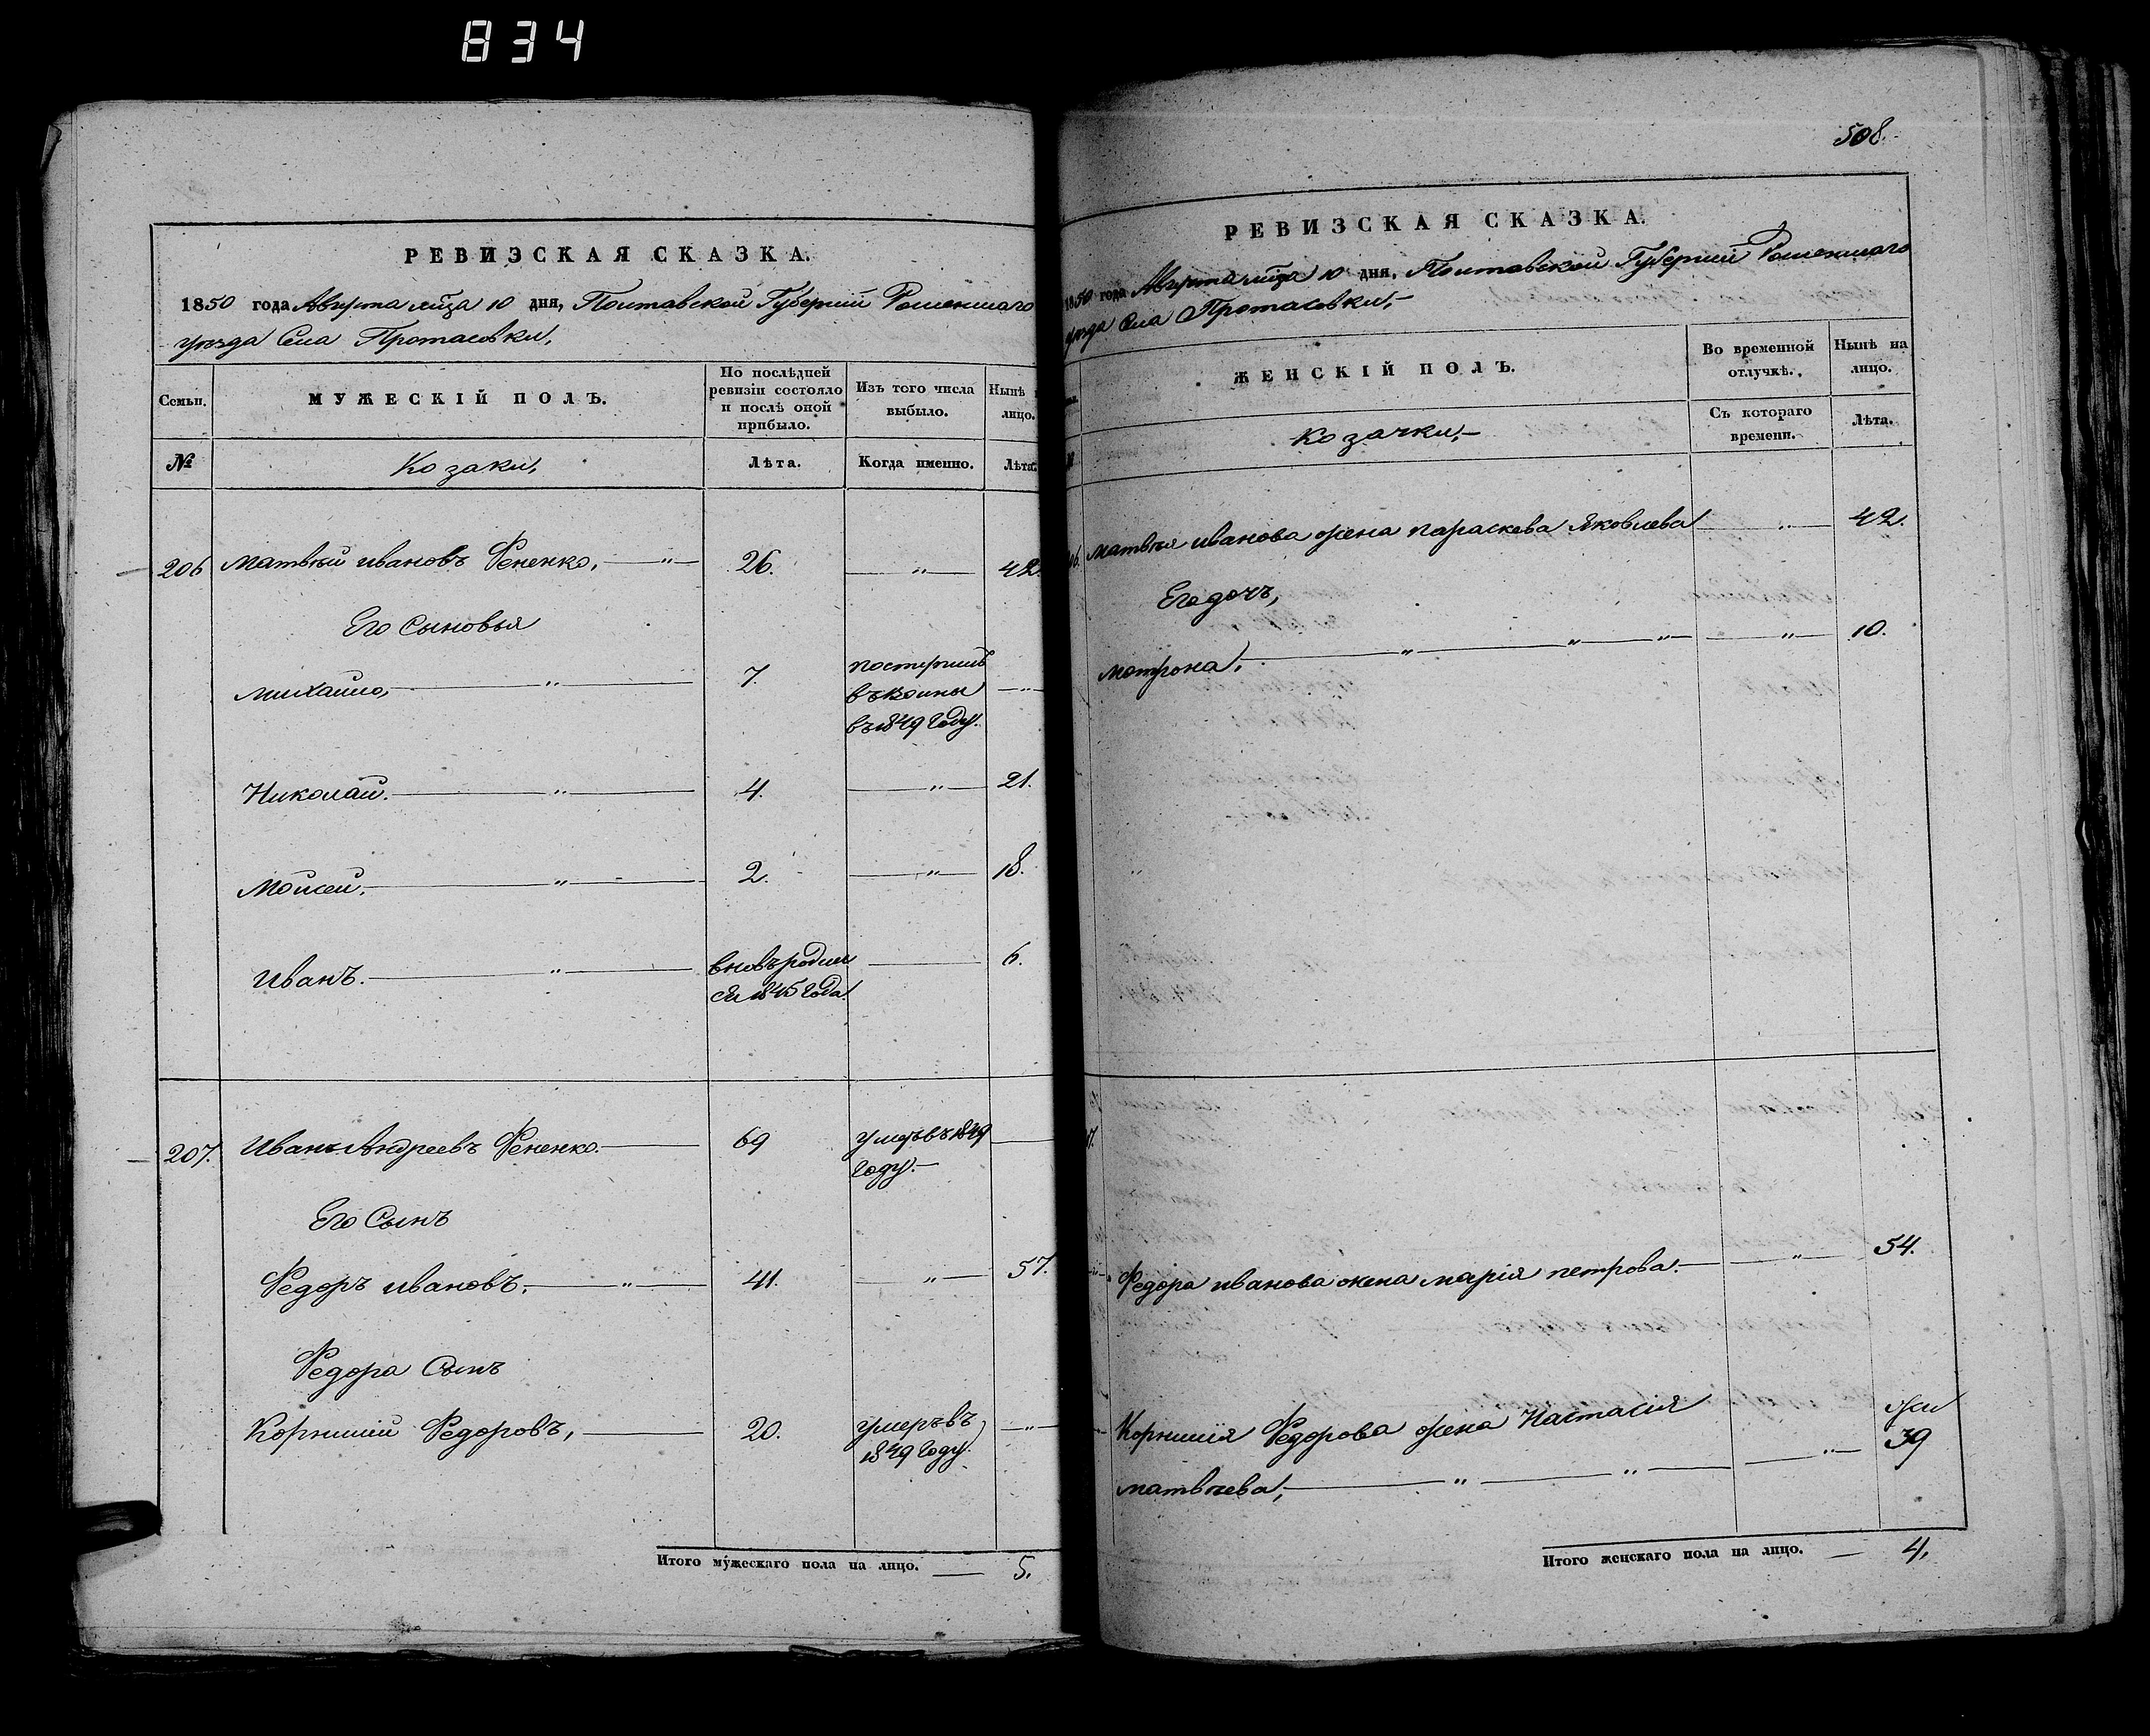 834
РЕВИЗСКАЯ СКАЗКА.
1850 года Августа мца 10 дня, Полтавской Губерніи Роменскаго
уѣзда Села Протасовки,
Семьи.
МУЖЕСКІЙ ПОЛЪ.
По послѣдней ревизіи состояло и послѣ оной прибыло.
Изъ того числа выбыло.
Нынѣ
лицо.
№
Козаки,
Лѣта.
Когда именно.
Лѣта.
206 Матвѣй Ивановъ Рененко, — " — 26. — " — 42.
Его Сыновья
Михайло, — " — 7.
въ
въ 1849 Году. — " —
Николай. — " — 4. — " — 21.
Мойсей. — " — 2. — " — 18.
Иванъ. — " — вновь родил
ся 1845 Года. — 6.
207. Иванъ Андреевъ Рененко. — 69 умеръ въ 1849
Году. —
Его Сынъ
Федоръ Ивановъ. — " — 41. — " — 57.
Федора Сынъ
Корнилій Федоровъ, — 20. умеръ въ
1849 Году. — " —
Итого мужескаго пола на лицо. — 5.
508.
РЕВИЗСКАЯ СКАЗКА.
1850 года Августа мца 10 дня, Полтавской Губерніи Роменскаго
уѣзда Села Протасовки, —
ЖЕНСКІЙ ПОЛЪ.
Во временной отлучкѣ.
Нынѣ на лицо.
Козачки, —
Съ котораго времени.
Лѣта.
Матвѣя Иванова жена Параскева Яковлева — " — 42.
Его дочь,
Мотрона, — " — " — " — 10.
Федора Иванова жена Марія Петрова. — " — 54.
Корнилія Федорова жена Настасія
Матвѣева, — " — " — " — 39
Итого женскаго пола на лицо. — 4.